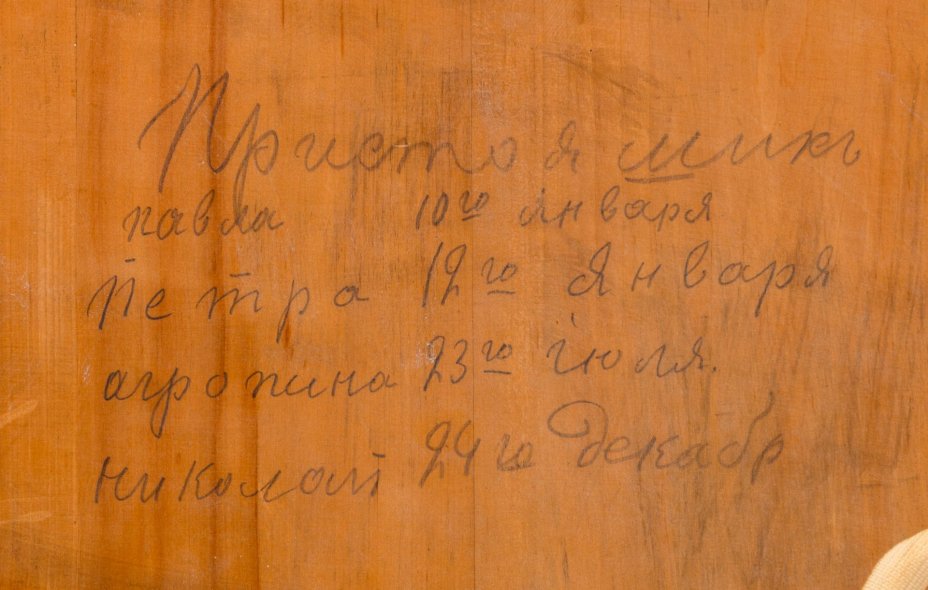 Пристоя мики
павла 10го января
Петра 12го Января
агропина 23го іюля.
николай 24го декабр